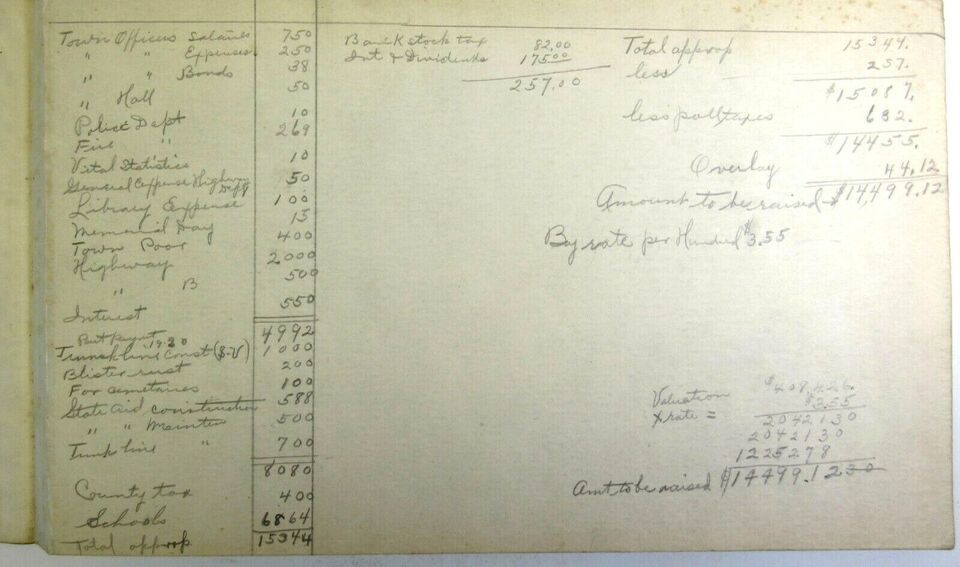 Town Officers Salaries 750
" " Expenses 250
" " Bonds 38
" Hall 50
Police Dept 10
Fire " 269
Vital Statistics 10
General Expense Highway Dept 50
Library Expense 100
Memorial Day 15
Town Poor 400
Highway 2000
" B 500
Interest 550
4992
Part Paymt 1920
Trunk line Const (S-V) 1000
Blister rust 200
For cemetaries 100
State Aid construction 588
" " Mainten 500
Trunk line " 700
8080
County tax 400
Schools 6864
Total approp 15344
Bank stock tax 82.00
Int & Dividends 175.00
257.00
Total approp 15344.
less 257.
$15087.
less poll taxes 632.
$14455.
Overlay 44.12
Amount to be raised $14,499.12
By rate per Hundred $3.55
Valuation $408,426.
x rate = $3.55
2042130
2042130
1225278
Amt to be raised $14499.1230